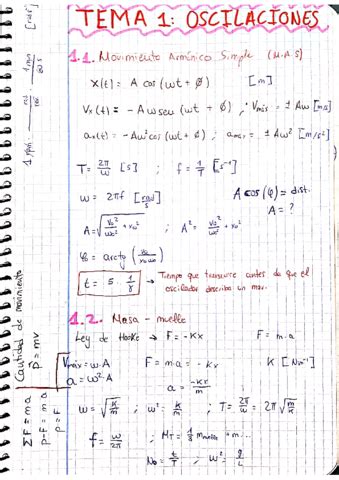 TEMA 1: OSCILACIONES
1.1. Movimiento Armónico Simple (M.A.S)
X(t) = A cos (ωt + Ø) [m]
Vx(t) = - Aω sen (ωt + Ø) ; Vmáx = ± Aω [m/s]
ax(t) = - Aω² cos (ωt + Ø) ; amáx = ± Aω² [m/s²]
T = 2π/ω [s] ; f = 1/T [s⁻¹]
ω = 2πf [rad/s]
A cos(φ) = dist.
A = ?
A = √(v₀²/ω² + x₀²) ; A² = v₀²/ω² + x₀²
φ = arctg (v₀/x₀ω)
t = 5 · 1/γ → Tiempo que transcurre antes de que el
oscilador describa un mov.
1.2. Masa - muelle
Ley de Hooke → F = -Kx F = m·a
Vmáx = ω·A
a = ω²·A
F = m·a = -Kx K [Nm⁻¹]
a = -Kx/m
ω = √(K/m) ; ω² = K/m ; T = 2π/ω = 2π √(m/K)
f = ω/2π ; MT = 1/3 Mmuelle + m...
No = t/T ; ω² = g/L
Cantidad de movimiento
p = mv
ΣF = ma
P - F = m a
P = F